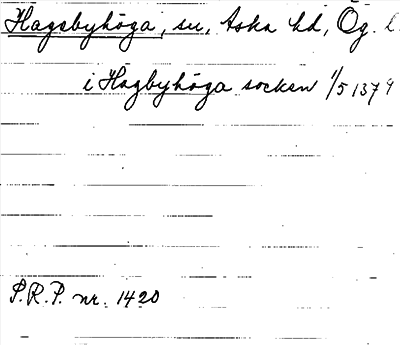 Hagebyhöga, sn, Aska hd, Ög. l.
i Hagbyhöga socken 1/5 1379
S.R.P. nr. 1420